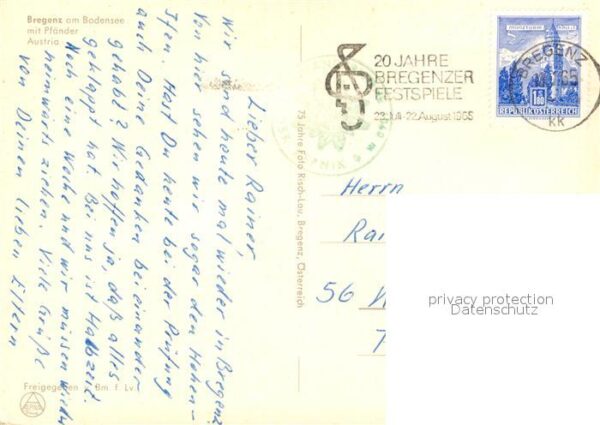 Bregenz am Bodensee
mit Pfänder
Austria
Lieber Rainer,
Wir sind heute mal wieder in Bregenz.
Von hier sehen wir sogar den Hohen-
Hast Du heute bei der Prüfung
auch Deine Gedanken beieinander
gehabt? Wir hoffen ja, daß alles
geklappt hat. Bei uns ist Halbzeit.
Noch eine Woche und wir müssen wieder
heimwärts ziehen. Viele Grüße
von Deinen lieben Eltern
75 Jahre Foto Risch-Lau, Bregenz, Österreich
Freigegeben Bm. f. Lv.
20 JAHRE
BREGENZER
FESTSPIELE
22. Juli - 22. August 1965
BREGENZ
65
KK
1.80
REPUBLIK ÖSTERREICH
Herrn
Rai
56 W
7
privacy protection
Datenschutz